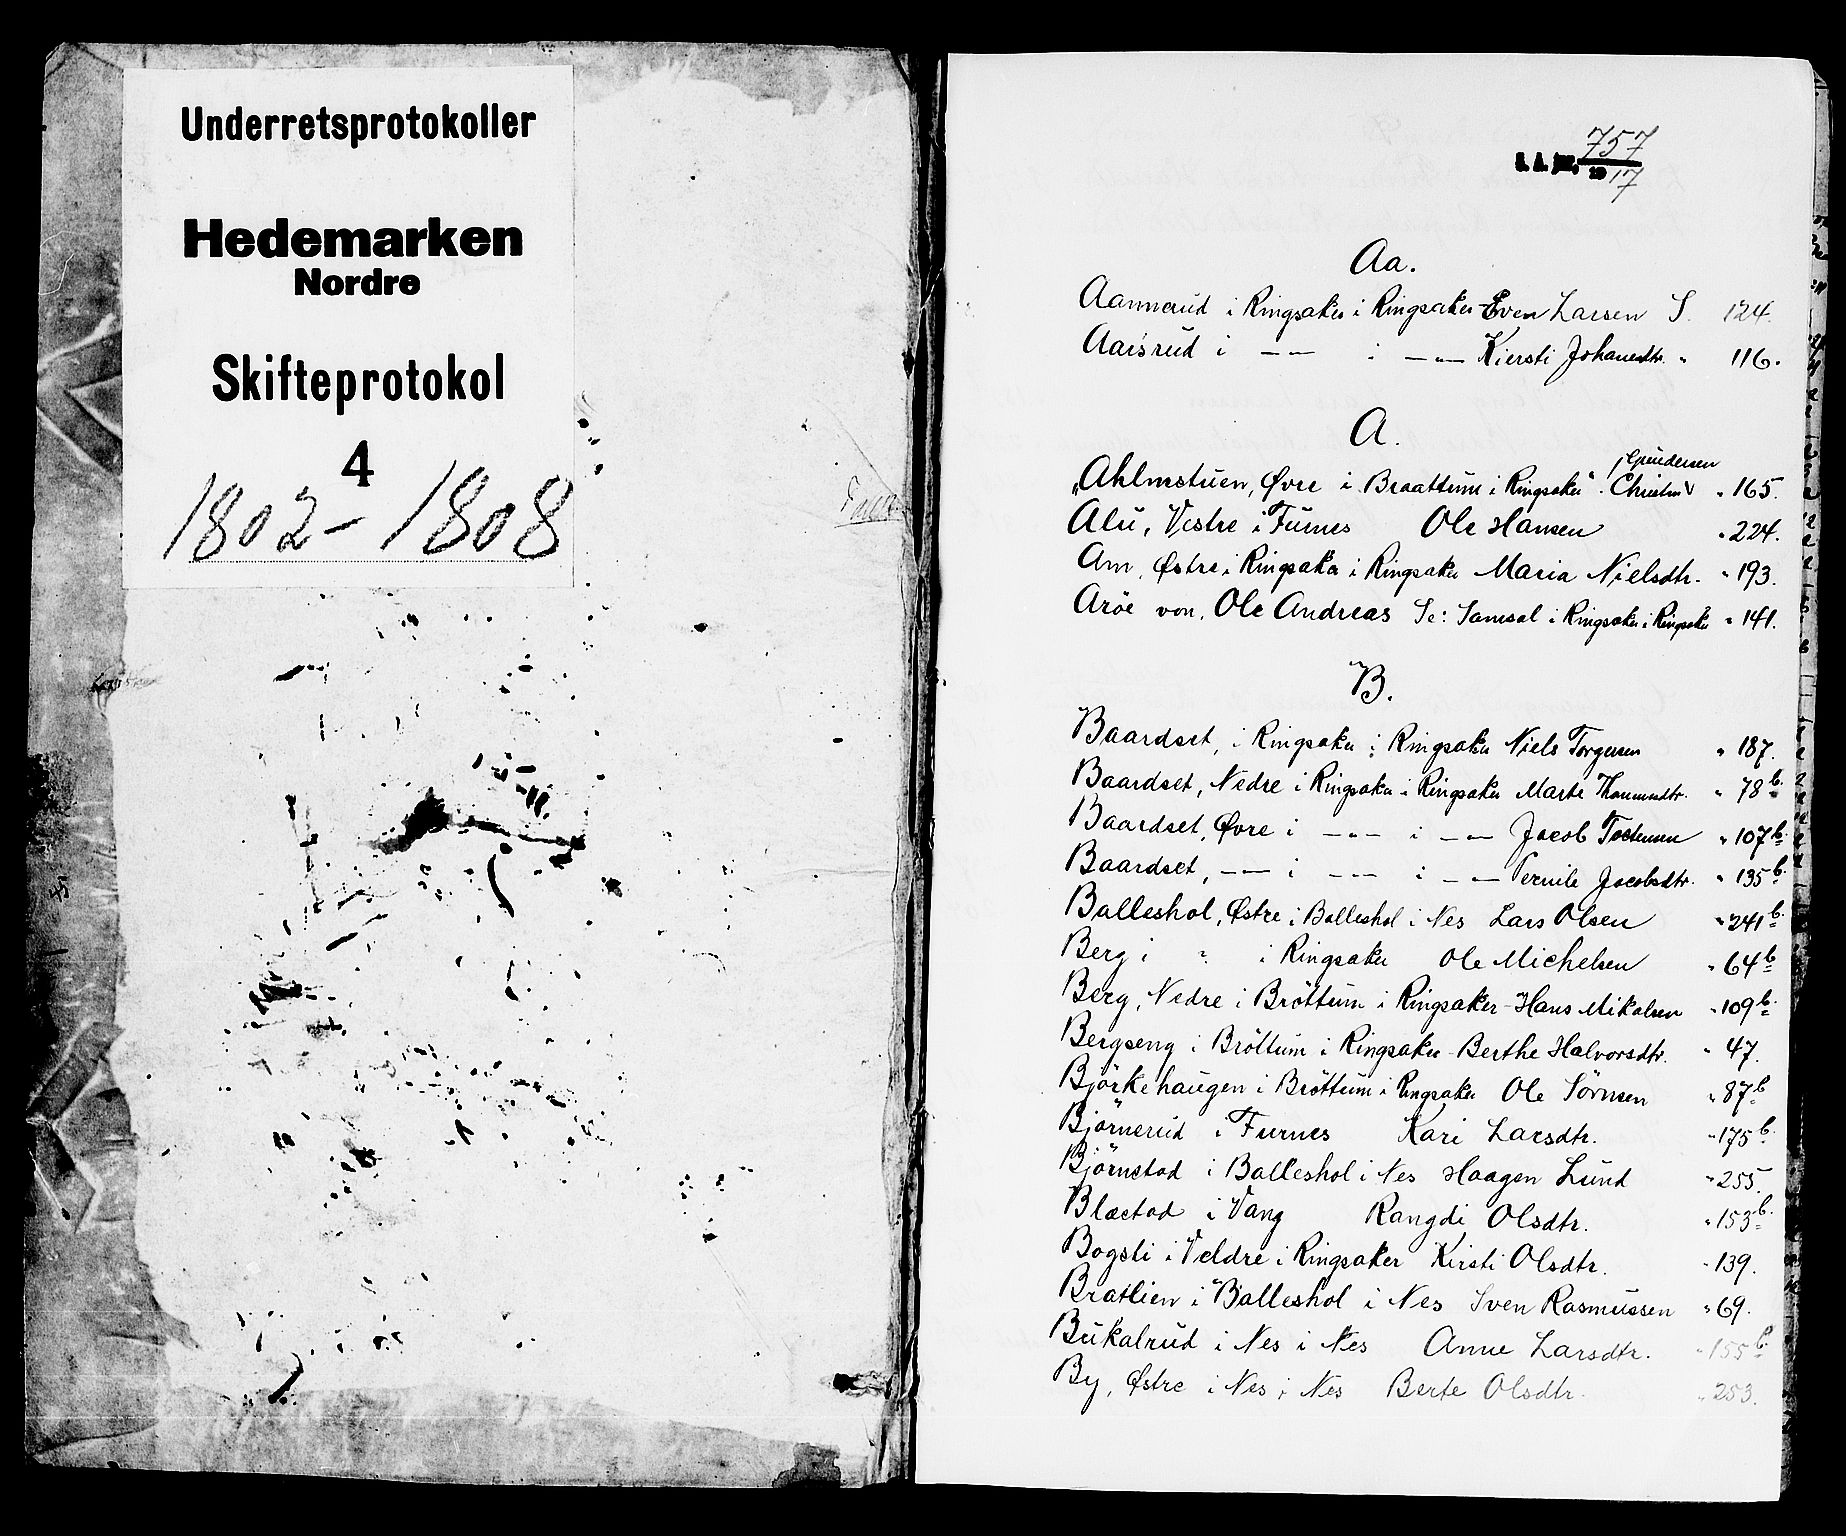 Underretsprotokoller
Hedemarken
Nordre
Skifteprotokol
4
1802 - 1808
S. A. jnr. 757
19 17
Aa.
Aannerud i Ringsaker i Ringsaker Even Larsen S. 124.
Aaisrud i —„— i —„— Kiersti Johanesdtr. „ 116.
A.
Gundersen
„Ahlmstuen, Øvre i Braattum i Ringsaker". Christen „ 165.
Alu, Vestre i Furnes Ole Hansen „ 224.
Am, Østre i Ringsaker i Ringsaker Maria Nielsdtr. „ 193.
Aröe von, Ole Andreas Se: Samsal i Ringsaker i Ringsaker „ 141.
B.
Baardset, i Ringsaker i Ringsaker Niels Torgersen „ 187.
Baardset, Nedre i Ringsaker i Ringsaker Marte Thommesdtr. „ 78 b.
Baardset, Øvre i —„— i —„— Jacob Tostensen „ 107 b.
Baardset, —„— i —„— i —„— Pernile Jacobsdtr. „ 135 b.
Balleshol, Østre i Balleshol i Nes Lars Olsen „ 241 b.
Berg i „ i Ringsaker Ole Michelsen „ 64 b
Berg, Nedre i Bröttum i Ringsaker - Hans Mikalsen „ 109 b.
Bergseng i Bröttum i Ringsaker - Berthe Halvorsdtr. „ 47.
Björkehaugen i Bröttum i Ringsaker Ole Sörnsen „ 87 b
Björnerud i Furnes Kari Larsdtr. „ 175 b.
Björnstad i Balleshol i Nes Haagen Lund „ 255.
Blæstad i Vang Rangdi Olsdtr. „ 153 b.
Bogsti i Veldre i Ringsaker Kirsti Olsdtr. „ 139.
Bratlien i Balleshol i Nes Sven Rasmussen „ 69.
Bukalrud i Nes i Nes Anne Larsdtr. „ 155 b.
By, Østre i Nes i Nes Berte Olsdtr. „ 253.